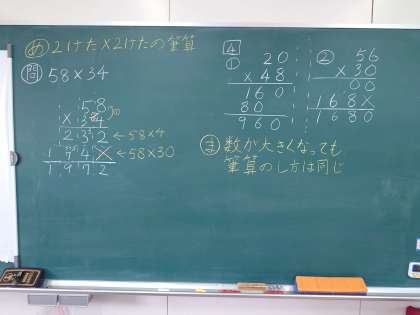 め 2けた×2けたの筆算
問 58×34
58
×34
232 ←58×4
174 ←58×30
1972
4
① 20
×48
160
80
960
② 56
×30
00
168
1680
ま 数が大きくなっても
筆算のし方は同じ